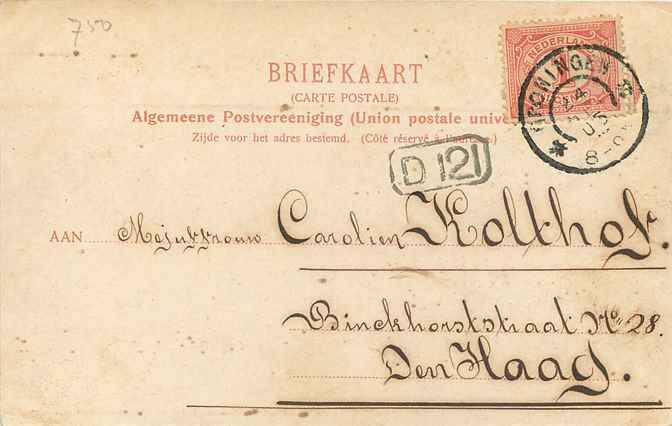 750
NEDERLAND
GRONINGEN
BRIEFKAART
(CARTE POSTALE)
Algemeene Postvereeniging (Union postale unive
Zijde voor het adres bestemd. (Côté réservé à l'adresse.)
D 121
AAN Mejuffrouw Carolien Kolthof.
Binckhorststraat No 28.
Den Haag.